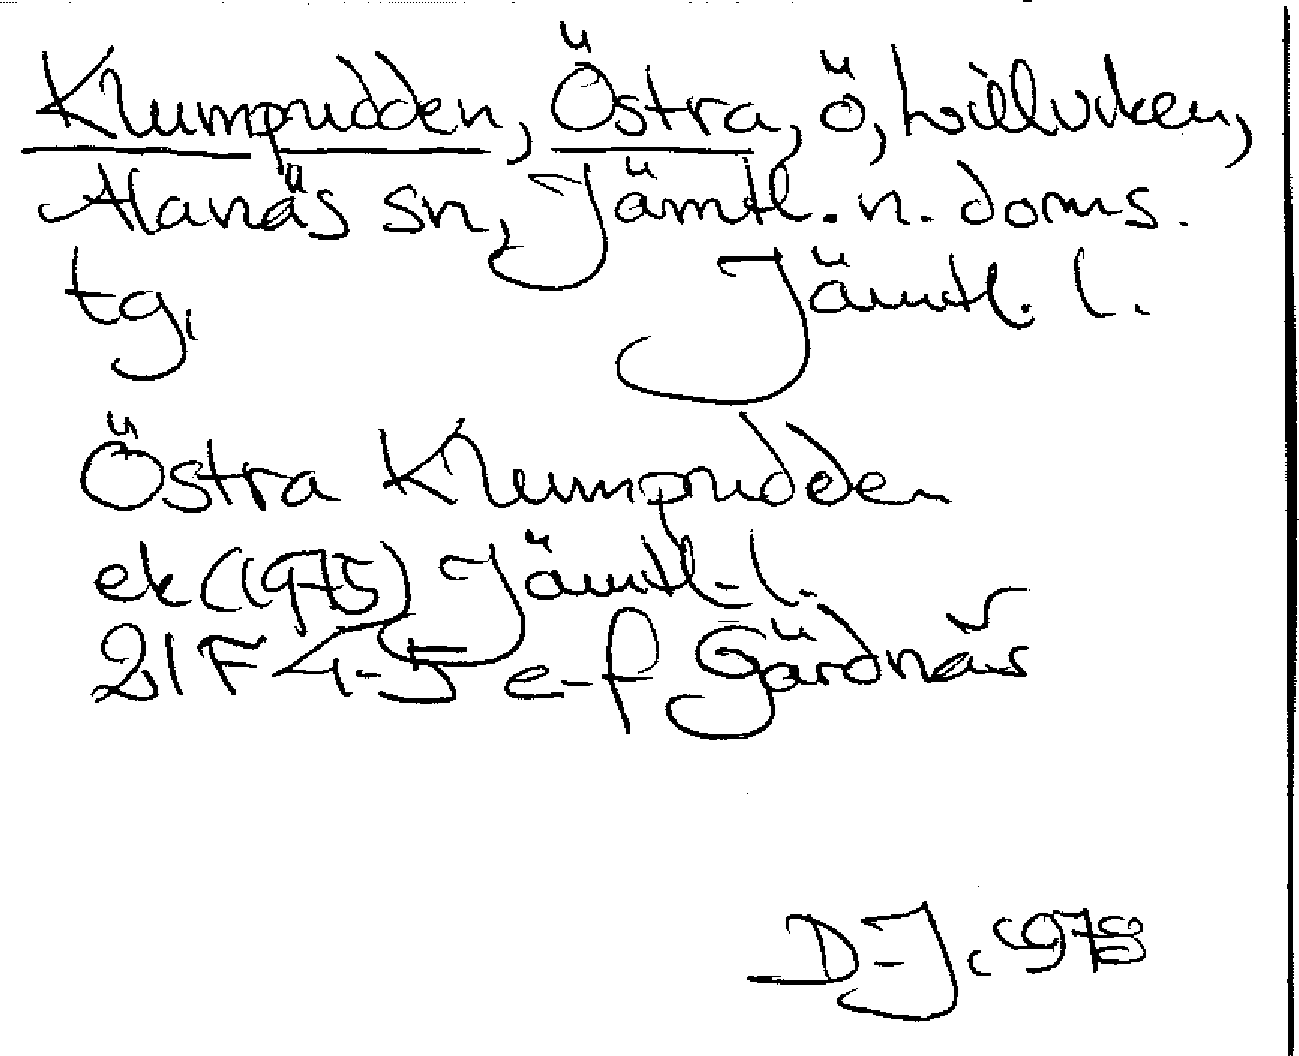 Klumpudden, Östra, ö, Lillviken,
Alanäs sn, Jämtl. n. doms.
tg. Jämtl. l.
Östra Klumpudden
ek (1975) Jämtl. l.
21F 4-5 e-f Gärdnäs
D-J.